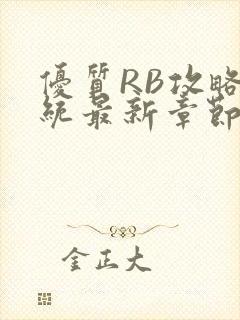 優質RB攻略
統最新章節
金正大